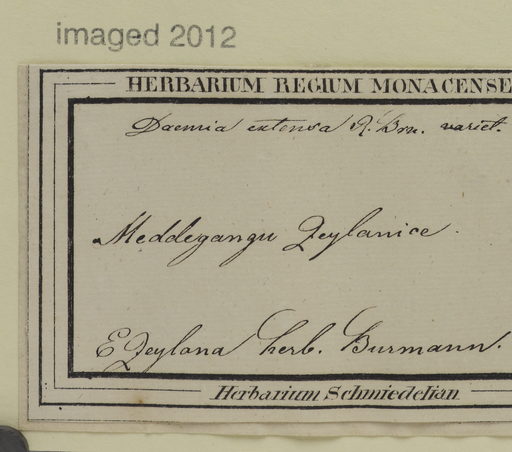 imaged 2012
HERBARIUM REGIUM MONACENSE
Daemia extensa R. Brn. variet.
Meddegangu Zeylanice.
E Zeylona herb. Burmann.
Herbarium Schmiedelian